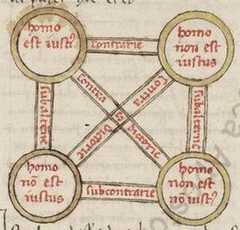 homo
est iust9
contrarie
homo
non est
iustus
subalterne
contra
dictorie
contra
dictorie
subalterne
homo
nō est
iustus
subcontrarie
homo
non est
nō iust9